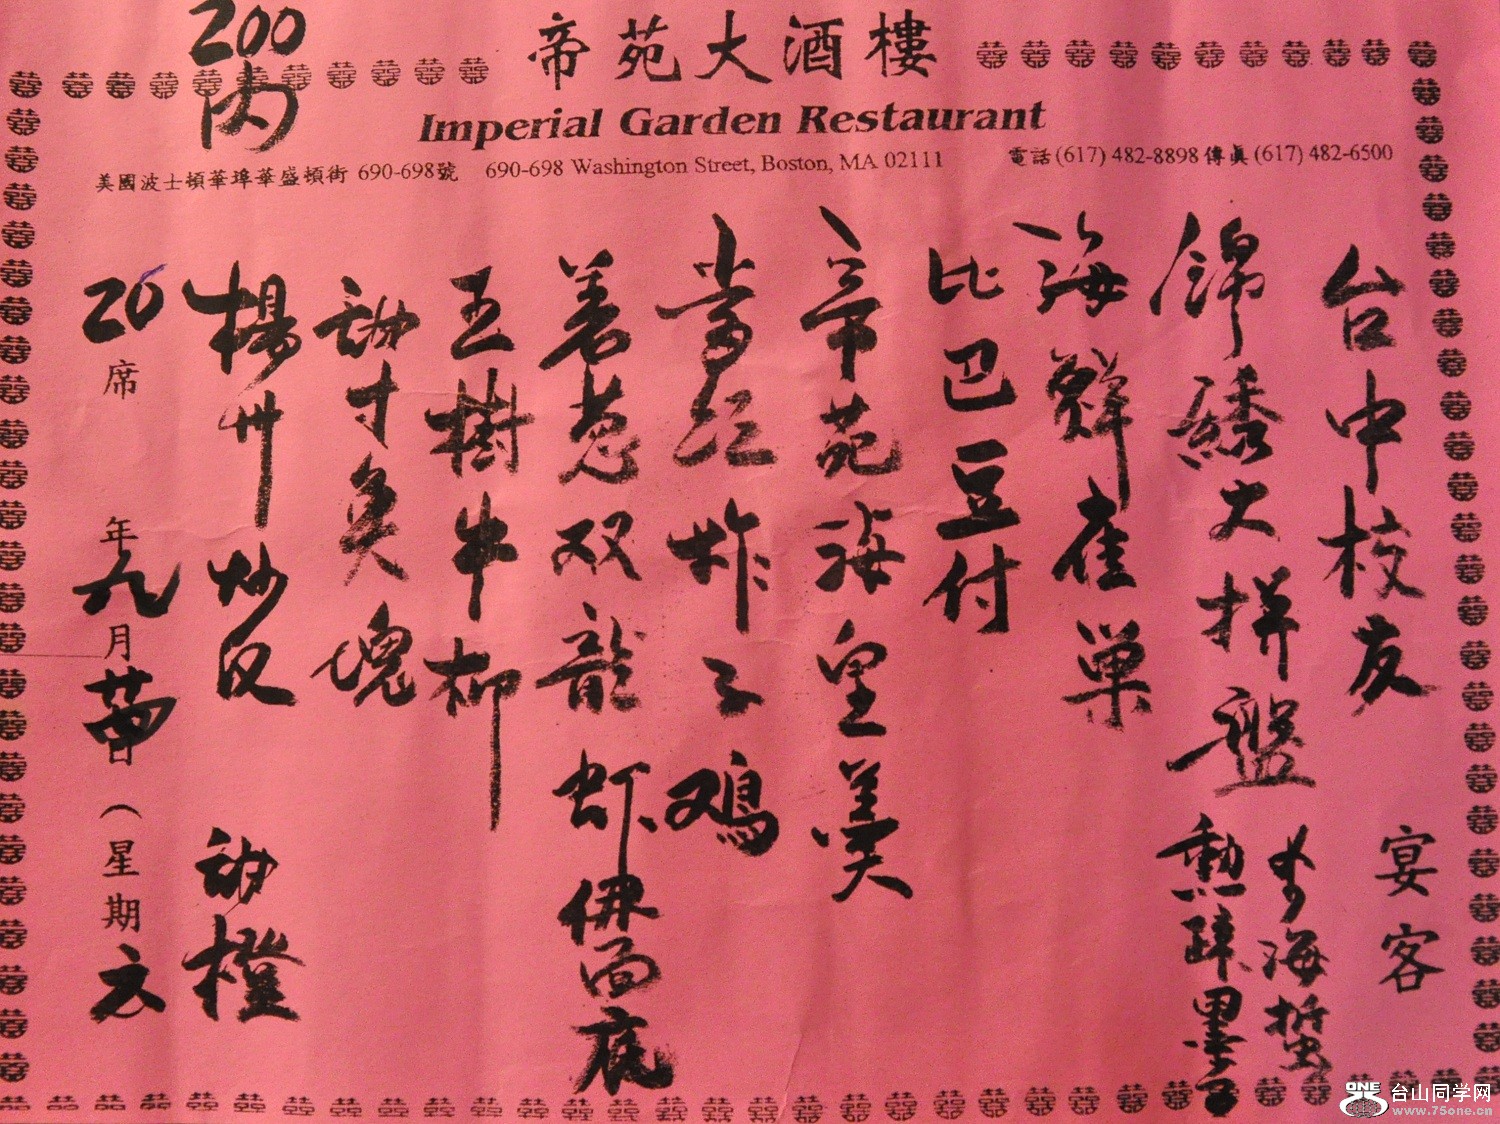 200
内
帝苑大酒樓
Imperial Garden Restaurant
美國波士頓華埠華盛頓街 690-698號 690-698 Washington Street, Boston, MA 02111 電話 (617) 482-8898 傳真 (617) 482-6500
台中校友 宴客
錦綉大拼盤
海蜇
海鮮雀巢
比巴豆付
帝苑海皇羹
当红炸子鸡
姜葱双龍虾伊面底
玉樹牛柳
炒寸
楊卅炒反
橙
20席 年九月 日（星期六
ONE
75
台山同学网
www.75one.cn